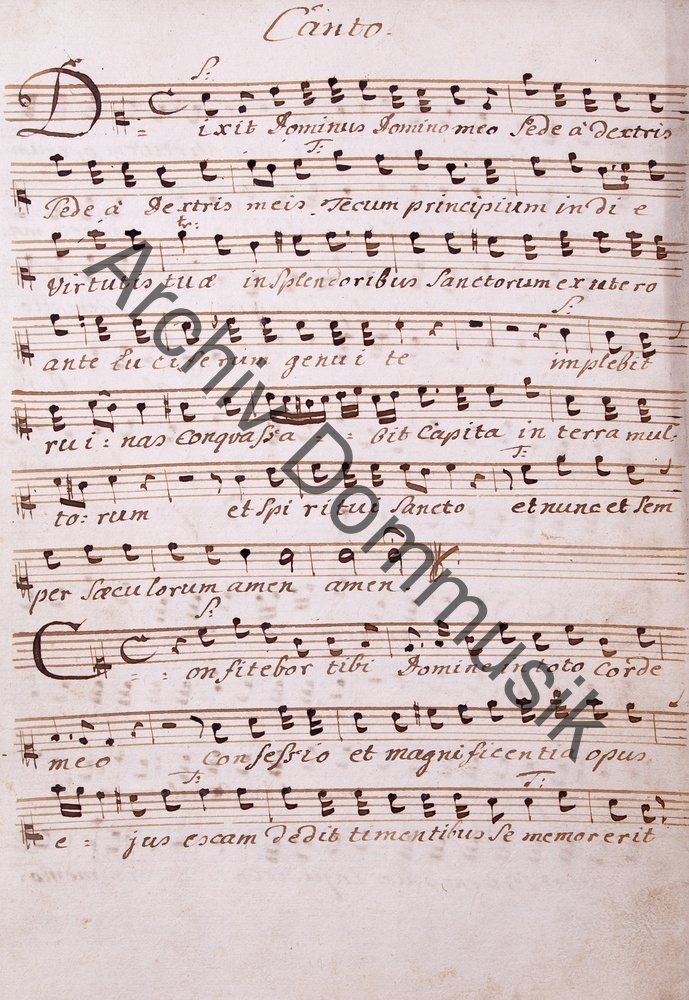 Canto.
S:
Dixit Dominus Domino meo Sede à dextris
T:
Sede à Dextris meis. Tecum principium in di e
tr:
virtutis tuæ in Splendoribus Sanctorum ex utero
S:
ante Luciferum genui te implebit
rui: nas Conquassa - - bit Capita in terra mul:
T:
to: rum et Spiritui Sancto et nunc et Sem
per Sæculorum amen amen.
S:
Confitebor tibi Domine in toto Corde
meo Confessio et magnificentia opus
T: T:
e - jus escam dedit timentibus Se memor erit
Archiv Dommusik